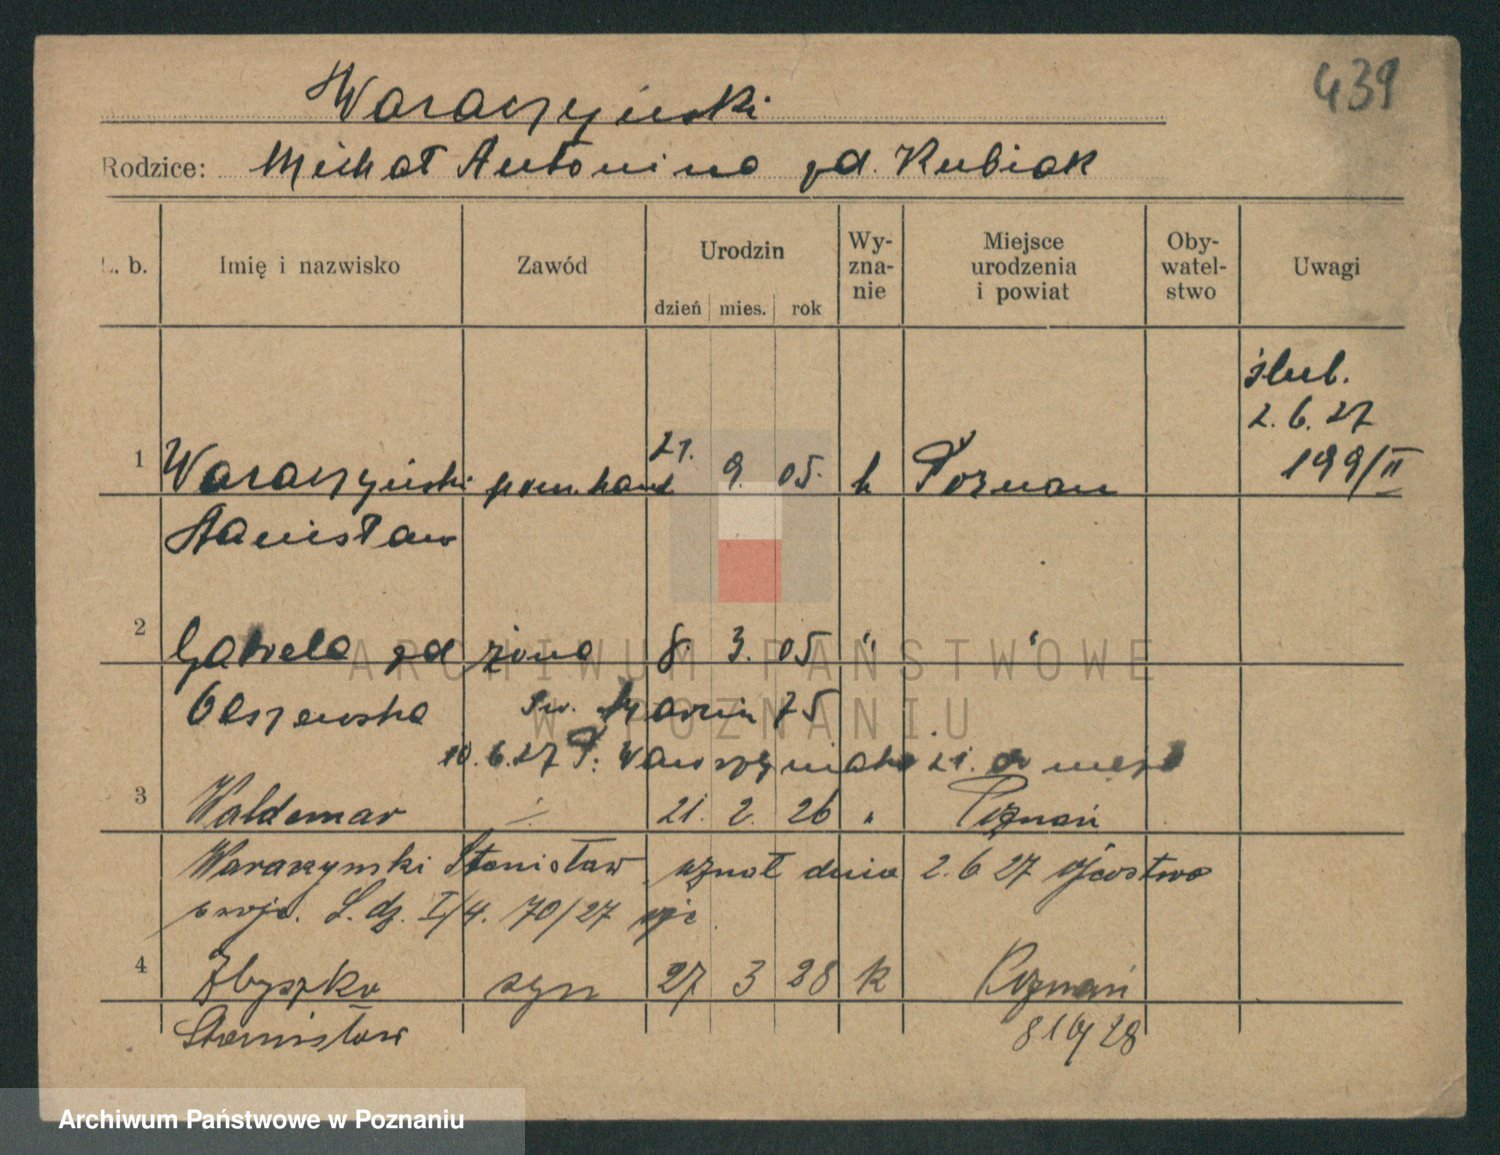 439
Waraczyński
Rodzice: Michał Antonina zd. Kubiak
L. b. Imię i nazwisko Zawód Urodzin dzień mies. rok Wy-zna-nie Miejsce urodzenia i powiat Oby-watel-stwo Uwagi
ślub.
2.6.27
199/II
1 Waraczyński pom. hand 21. 9. 05. k Poznań
Stanisław
2 Gabrela zd żona 8. 3. 05 " "
Olszewska św. Marcin 75
10.6.27 P: Wawrzyniaka 21.
3 Waldemar ·/· 21. 2. 26 " Poznań
Waraczynski Stanisław uznał dnia 2.6 27 ojcostwo
swoje. L. dz. I/4. 70/27
4 Zbyszko syn 27 3 28 k Poznań
Stanisław
ARCHIWUM PAŃSTWOWE
W POZNANIU
Archiwum Państwowe w Poznaniu